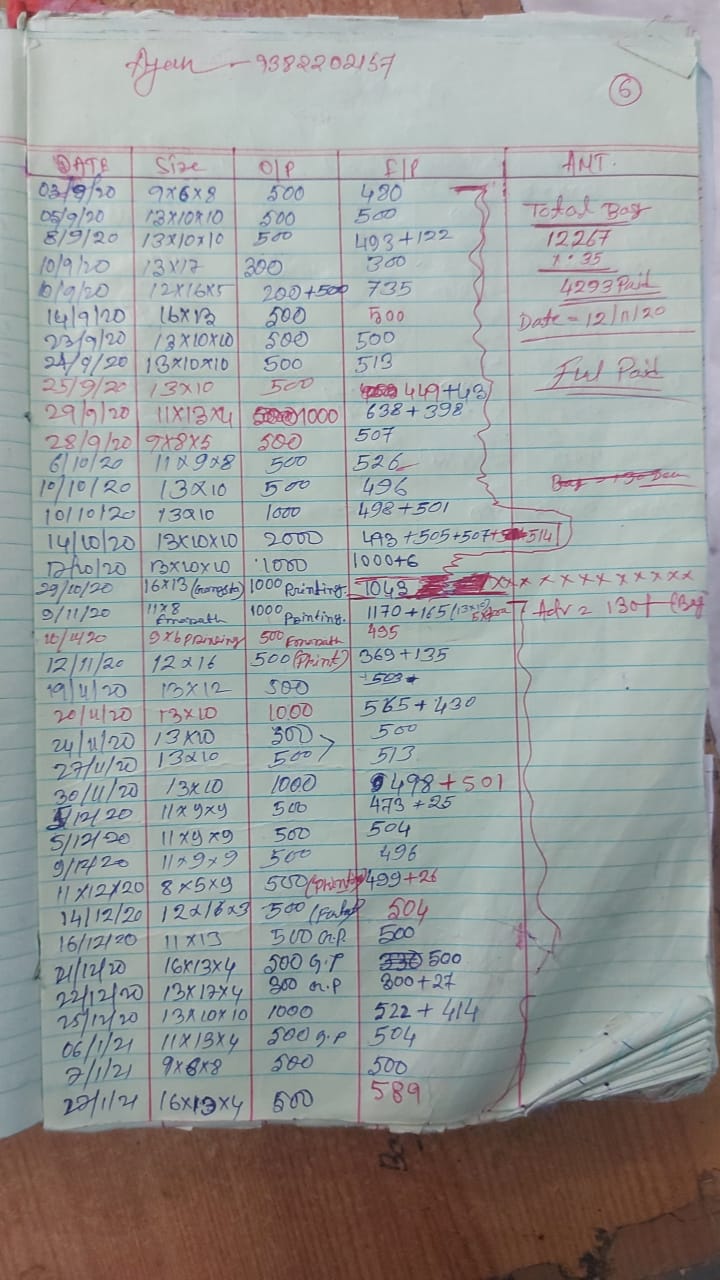 Ayan - 9382202157
6
DATE Size O/P F/P AMT.
03/9/20 9x6x8 500 480
05/9/20 13x10x10 500 500 Total Bag
8/9/20 13x10x10 500 493+122 12267
10/9/20 13x17 300 300 x.35
10/9/20 12x16x5 200+500 735 4293 Paid
14/9/20 16x13 500 500 Date = 12/11/20
23/9/20 13x10x10 500 500
24/9/20 13x10x10 500 513 Full Paid
25/9/20 13x10 500 449+43
29/9/20 11x13x4 1000 638+398
28/9/20 9x8x5 500 507
6/10/20 11x9x8 500 526
10/10/20 13x10 500 496
10/10/20 13x10 1000 498+501
14/10/20 13x10x10 2000 493+505+507+514
17/10/20 13x10x10 1000 1000+6
29/10/20 16x13 1000 Printing. 1043 xxx x x x x x x x x x x
9/11/20 11x8 1000 Printing. 1170+165 (13x10) Adv = 130/- (Bag
10/11/20 9x6 printing 500 495
12/11/20 12x16 500 (Print) 369+135
19/11/20 13x12 500 503
20/11/20 13x10 1000 565+430
24/11/20 13x10 500 500
27/11/20 13x10 500 513
30/11/20 13x10 1000 498+501
/12/20 11x9x9 500 473+25
5/12/20 11x9x9 500 504
9/12/20 11x9x9 500 496
11x12x20 8x5x9 500 (Print) 499+26
14/12/20 12x16x3 500 504
16/12/20 11x13 500 G.P. 500
21/12/20 16x13x4 500 G.P 500
22/12/20 13x17x4 300 G.P 300+27
25/12/20 13x10x10 1000 522+414
06/1/21 11x13x4 500 G.P 504
7/1/21 9x6x8 500 500
27/1/21 16x13x4 500 589